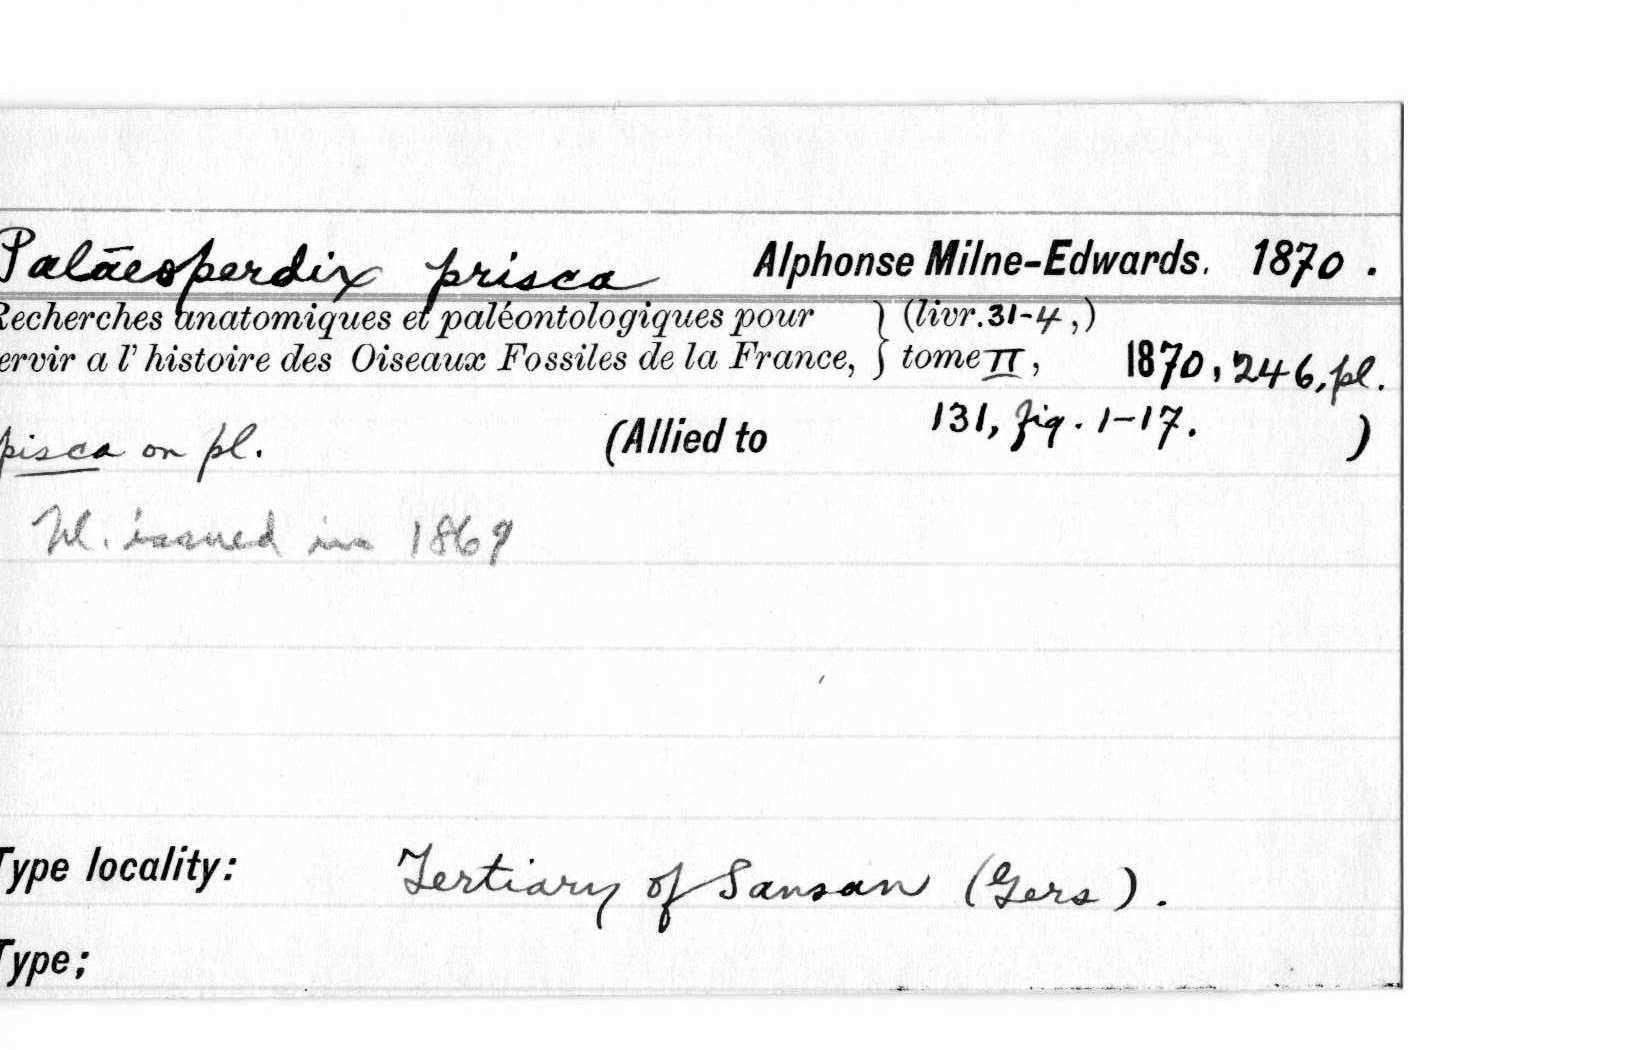 Palāeoperdix prisca Alphonse Milne-Edwards. 1870.
Recherches anatomiques et paléontologiques pour } (livr. 31-4,)
ervir a l'histoire des Oiseaux Fossiles de la France, } tome II, 1870, 246, pl.
131, fig. 1-17.
pisca on pl. (Allied to )
Pl. issued in 1869
Type locality: Tertiary of Sansan (Gers).
Type;